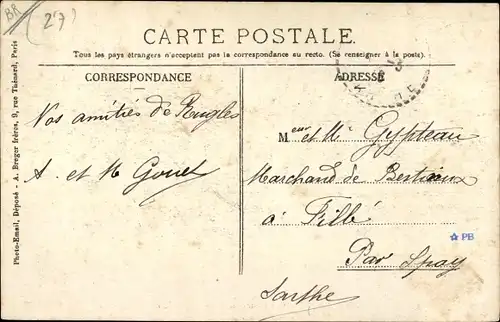 BR
(27)
CARTE POSTALE.
Tous les pays étrangers n'acceptent pas la correspondance au recto. (Se renseigner à la poste).
CORRESPONDANCE
ADRESSE
Nos amitiés de Rugles
A. et M Gouet
Meur et Me Gypteau
Marchand de Bestiaux
à Fillé
Par Spay
Sarthe
PB
Photo-Email, Déposé - A. Breger frères, 9, rue Thénard, Paris